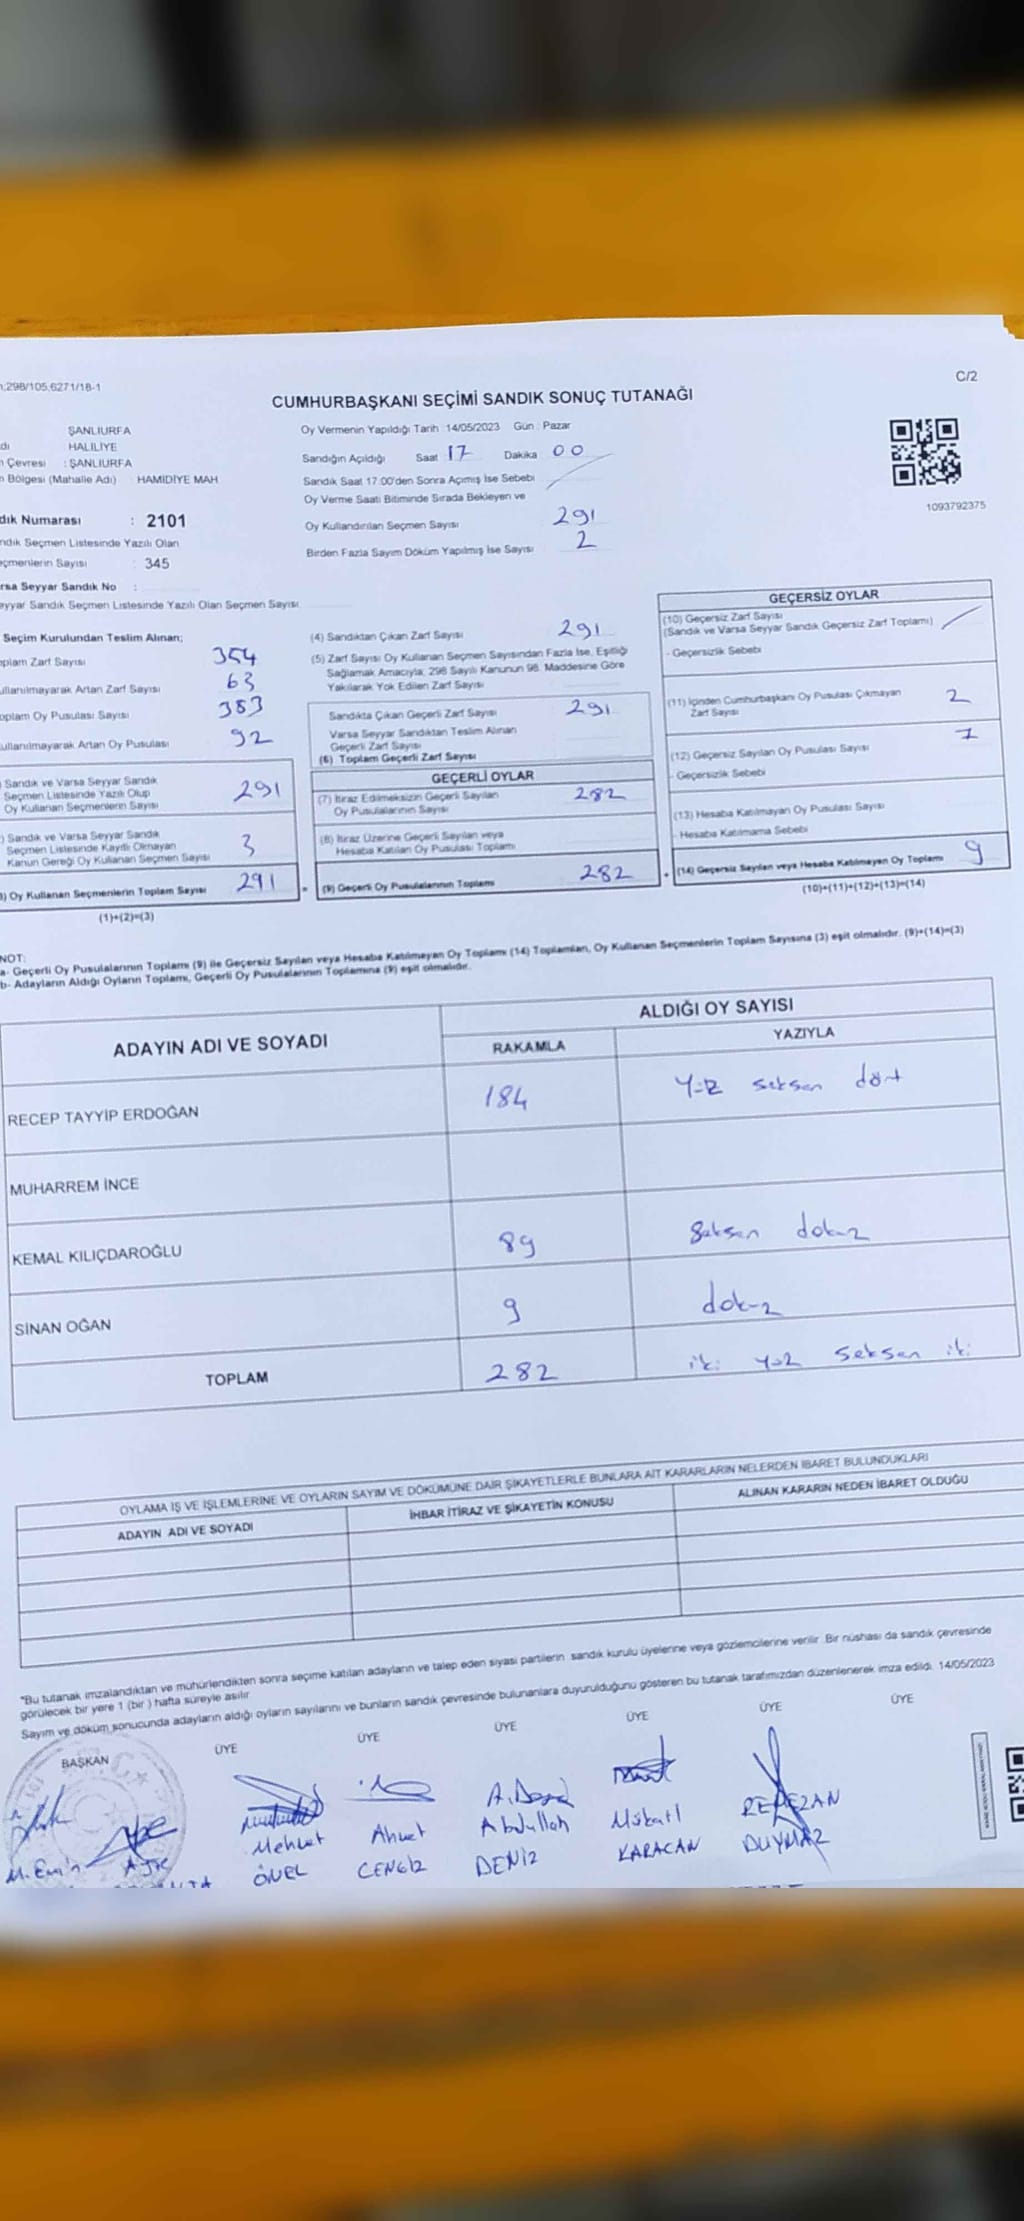 298/105,6271/18-1
C/2
CUMHURBAŞKANI SEÇİMİ SANDIK SONUÇ TUTANAĞI
ŞANLIURFA
HALİLİYE
Çevresi : ŞANLIURFA
Bölgesi (Mahalle Adı) HAMİDİYE MAH
dık Numarası : 2101
ndık Seçmen Listesinde Yazılı Olan
eçmenlerin Sayısı : 345
rsa Seyyar Sandık No :
eyyar Sandık Seçmen Listesinde Yazılı Olan Seçmen Sayısı
Oy Vermenin Yapıldığı Tarih :14/05/2023 Gün : Pazar
Sandığın Açıldığı Saat 17 Dakika 00
Sandık Saat 17:00'den Sonra Açımış İse Sebebi
Oy Verme Saati Bitiminde Sırada Bekleyen ve
Oy Kullandırılan Seçmen Sayısı 291
Birden Fazla Sayım Döküm Yapılmış İse Sayısı 2
1093792375
Seçim Kurulundan Teslim Alınan;
oplam Zarf Sayısı 354
ullanılmayarak Artan Zarf Sayısı 63
oplam Oy Pusulası Sayısı 383
ullanılmayarak Artan Oy Pusulası 92
Sandık ve Varsa Seyyar Sandık
Seçmen Listesinde Yazılı Olup
Oy Kullanan Seçmenlerin Sayısı 291
Sandık ve Varsa Seyyar Sandık
Seçmen Listesinde Kayıtlı Olmayan
Kanun Gereği Oy Kullanan Seçmen Sayısı 3
) Oy Kullanan Seçmenlerin Toplam Sayısı 291
(1)+(2)=(3)
(4) Sandıktan Çıkan Zarf Sayısı 291
(5) Zarf Sayısı Oy Kullanan Seçmen Sayısından Fazla İse, Eşitliği
Sağlamak Amacıyla; 298 Sayılı Kanunun 98. Maddesine Göre
Yakılarak Yok Edilen Zarf Sayısı
Sandıkta Çıkan Geçerli Zarf Sayısı 291
Varsa Seyyar Sandıktan Teslim Alınan
Geçerli Zarf Sayısı
(6) Toplam Geçerli Zarf Sayısı
GEÇERLİ OYLAR
(7) İtiraz Edilmeksizin Geçerli Sayılan
Oy Pusulalarının Sayısı 282
(8) İtiraz Üzerine Geçerli Sayılan veya
Hesaba Katılan Oy Pusulası Toplamı
= (9) Geçerli Oy Pusulalarının Toplamı 282
GEÇERSİZ OYLAR
(10) Geçersiz Zarf Sayısı
(Sandık ve Varsa Seyyar Sandık Geçersiz Zarf Toplamı)
- Geçersizlik Sebebi
(11) İçinden Cumhurbaşkanı Oy Pusulası Çıkmayan
Zarf Sayısı 2
(12) Geçersiz Sayılan Oy Pusulası Sayısı 7
- Geçersizlik Sebebi
(13) Hesaba Katılmayan Oy Pusulası Sayısı
- Hesaba Katılmama Sebebi
+ (14) Geçersiz Sayılan veya Hesaba Katılmayan Oy Toplamı 9
(10)+(11)+(12)+(13)=(14)
NOT:
a- Geçerli Oy Pusulalarının Toplamı (9) ile Geçersiz Sayılan veya Hesaba Katılmayan Oy Toplamı (14) Toplamları, Oy Kullanan Seçmenlerin Toplam Sayısına (3) eşit olmalıdır. (9)+(14)=(3)
b- Adayların Aldığı Oyların Toplamı, Geçerli Oy Pusulalarının Toplamına (9) eşit olmalıdır.
ADAYIN ADI VE SOYADI
ALDIĞI OY SAYISI
RAKAMLA
YAZIYLA
RECEP TAYYİP ERDOĞAN 184 Yüz seksen dört
MUHARREM İNCE
KEMAL KILIÇDAROĞLU 89 Seksen dokuz
SİNAN OĞAN 9 dokuz
TOPLAM 282 iki yüz seksen iki
OYLAMA İŞ VE İŞLEMLERİNE VE OYLARIN SAYIM VE DÖKÜMÜNE DAİR ŞİKAYETLERLE BUNLARA AİT KARARLARIN NELERDEN İBARET BULUNDUKLARI
ADAYIN ADI VE SOYADI
İHBAR İTİRAZ VE ŞİKAYETİN KONUSU
ALINAN KARARIN NEDEN İBARET OLDUĞU
"Bu tutanak imzalandıktan ve mühürlendikten sonra seçime katılan adayların ve talep eden siyasi partilerin sandık kurulu üyelerine veya gözlemcilerine verilir. Bir nüshası da sandık çevresinde
görülecek bir yere 1 (bir) hafta süreyle asılır.
Sayım ve döküm sonucunda adayların aldığı oyların sayılarını ve bunların sandık çevresinde bulunanlara duyurulduğunu gösteren bu tutanak tarafımızdan düzenlenerek imza edildi. 14/05/2023
BAŞKAN ÜYE ÜYE ÜYE ÜYE ÜYE ÜYE
M. Emin
Mehmet
ÖNEL
Ahmet
CENGİZ
Abdullah
DENİZ
Mükail
KARACAN
RAMAZAN
DUYMAZ